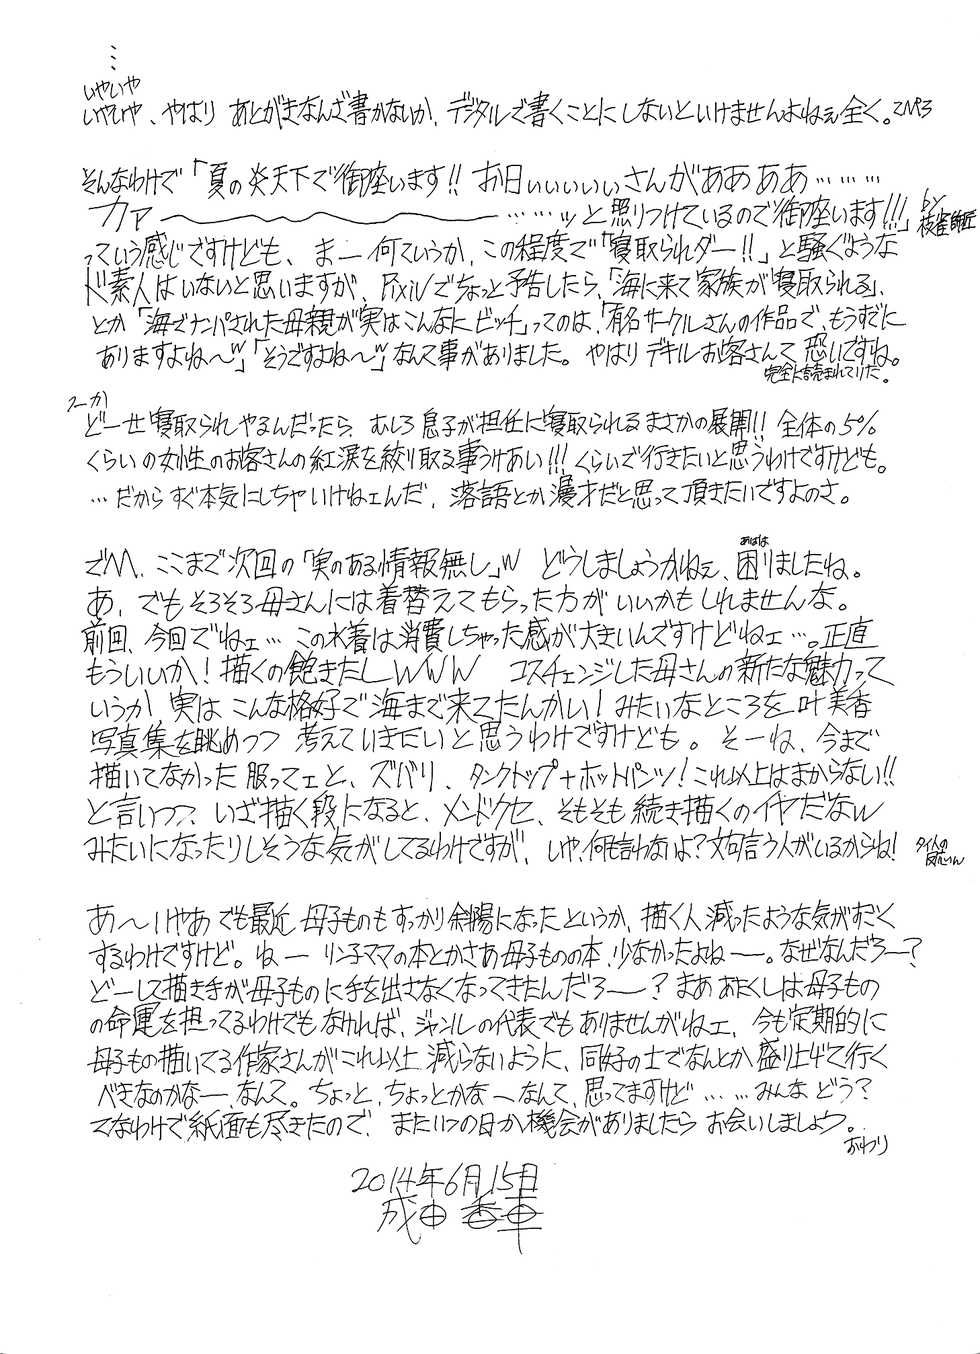 …
いやいや
いやいや、やはり あとがきなんざ書かないか、デジタルで書くことにしないといけませんよねぇ全く。
そんなわけで「夏の炎天下で御座います!! お日ぃぃぃぃぃさんがああああ………
カァ〜〜〜〜……ッと照りつけているので御座います!!!」by枝雀師匠
っていう感じですけども、まー何ていうか、この程度で「寝取られダー!!」と騒ぐような
ド素人はいないと思いますが、Pixivでちょっと予告したら、「海に来て家族が寝取られる」、
とか「海でナンパされた母親が実はこんなにビッチ」ってのは、「有名サークルさんの作品で、もうすでに
ありますよね〜w」「そうですよね〜w」なんて事がありました。やはりデキルお客さんて恐いですね。
完全に読まれていた。
つーか
どーせ寝取られやるんだったら、むしろ息子が担任に寝取られるまさかの展開!! 全体の5%
くらいの女性のお客さんの紅涙を絞り取る事うけあい!!! くらいで行きたいと思うわけですけども。
…だからすぐ本気にしちゃいけねェんだ、落語とか漫才だと思って頂きたいですよのさ。
でハハ、ここまで次回の「実のある情報無し」w どうしましょうかねぇ、困りましたね。
あはは
あ、でもそろそろ母さんには着替えてもらった方がいいかもしれませんな。
前回、今回でねェ…この水着は消費しちゃった感が大きいんですけどねェ…。正直
もういいか!描くの飽きたしwww コスチェンジした母さんの新たな魅力って
いうか 実は こんな格好で海まで来てたんかい!みたいなところを叶美香
写真集を眺めつつ 考えていきたいと思うわけですけども。そーね、今まで
描いてなかった服ってェと、ズバリ、タンクトップ+ホットパンツ!これ以上はまからない!!
と言いつつ、いざ描く段になると、メンドクセ、そもそも続き描くのイヤだなw
みたいになったりしそうな気がしてるわけですが、いや、何も言わないよ?文句言う人がいるからね!
あ〜いやあでも最近 母子ものもすっかり斜陽になったというか、描く人減ったような気がすごく
するわけですけど。ねー リン子ママの本とかさあ母子ものの本、少なかったよねー。なぜなんだろー?
どーして描き手が母子ものに手を出さなくなってきたんだろー?まああたくしは母子もの
の命運を担ってるわけでもなければ、ジャンルの代表でもありませんがねェ、今も定期的に
母子もの描いてる作家さんがこれ以上減らないように、同好の士でなんとか盛り上げて行く
べきなのかなー、なんて。ちょっと、ちょっとかなーなんて、思ってますけど……みんなどう?
てなわけで紙面も尽きたので、またいつの日か機会がありましたらお会いしましょう。
おわり
2014年6月15日
成田香車